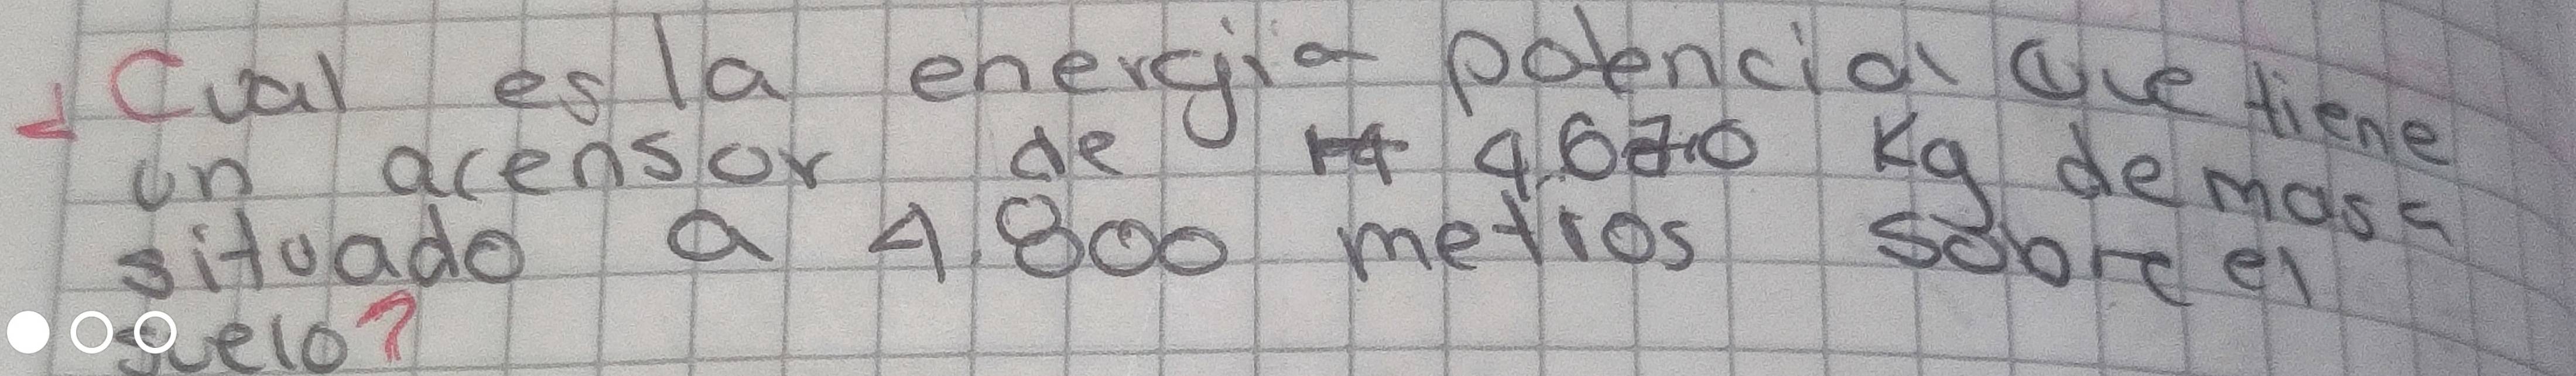 Cual es la energia potencial Que tiene
un acensor de 4.670 Kg de masa
situado a 4.800 metros sobre el
suelo?